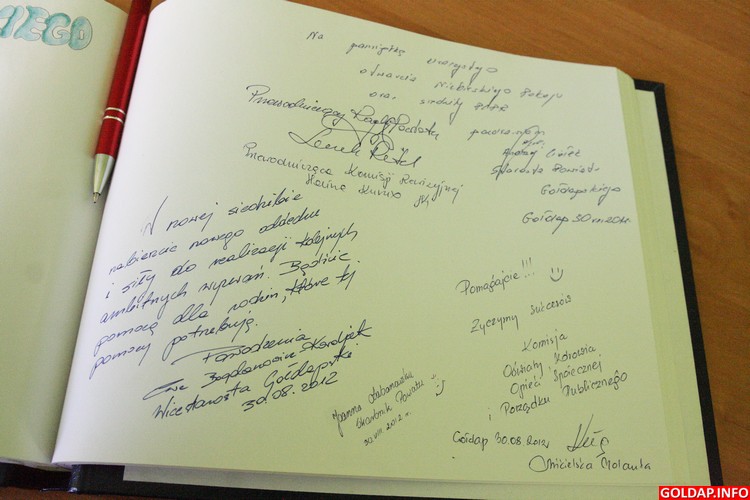 IEGO
Na pamiątkę uroczystego
otwarcia Niebieskiego Pokoju
oraz siedziby PCPR
Przewodniczący Rady Powiatu
podpisano
Andrzej
Starosta Powiatu
Gołdapskiego
Gołdap 30 VIII 2012
Przewodnicząca Komisji Rewizyjnej
Halina
W nowej siedzibie
nabierzcie nowego oddechu
i siły do realizacji kolejnych
ambitnych wyzwań. Bądźcie
pomocą dla rodzin, które tej
pomocy potrzebują.
Powodzenia
Ewa Bogdanowicz-Kordjak
Wicestarosta Gołdapski
30.08.2012
Joanna Łabanowska
Skarbnik Powiatu
30.VIII.2012 r.
Pomagajcie!!!
Życzymy sukcesów
Komisja
Oświaty, Zdrowia
Opieki Społecznej
i Porządku Publicznego
Gołdap 30.08.2012
GOLDAP.INFO